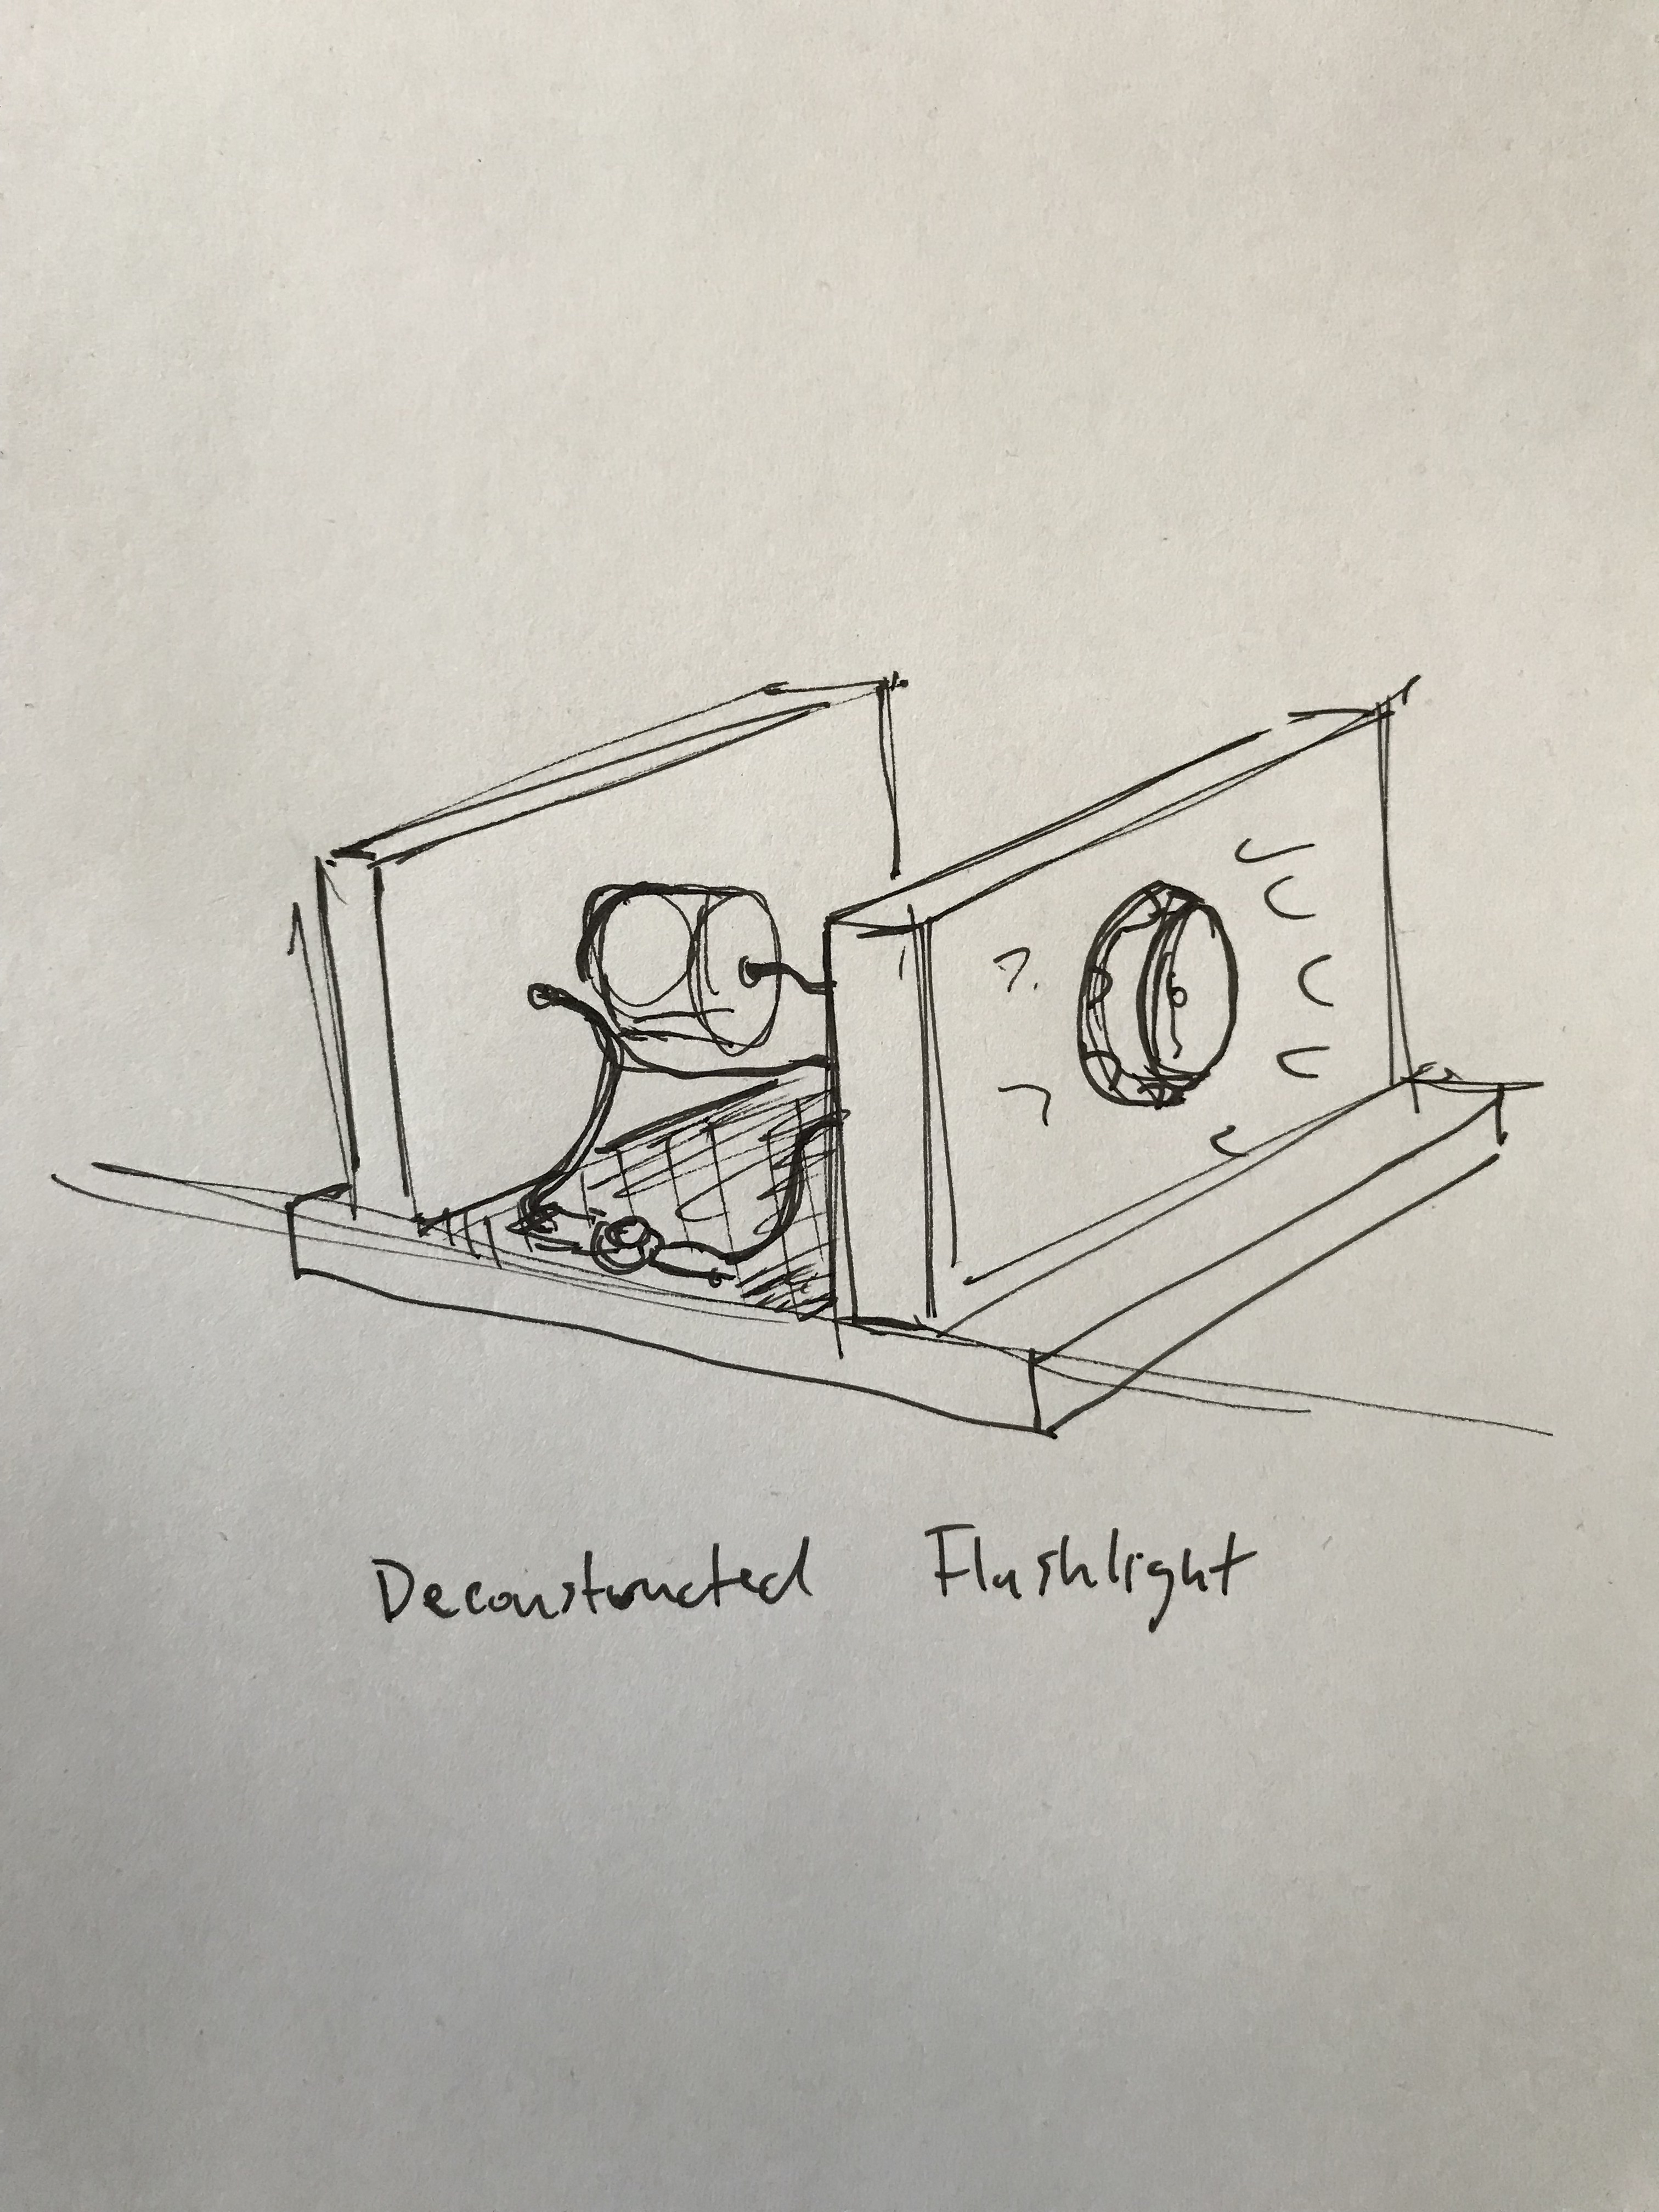 Deconstructed Flashlight